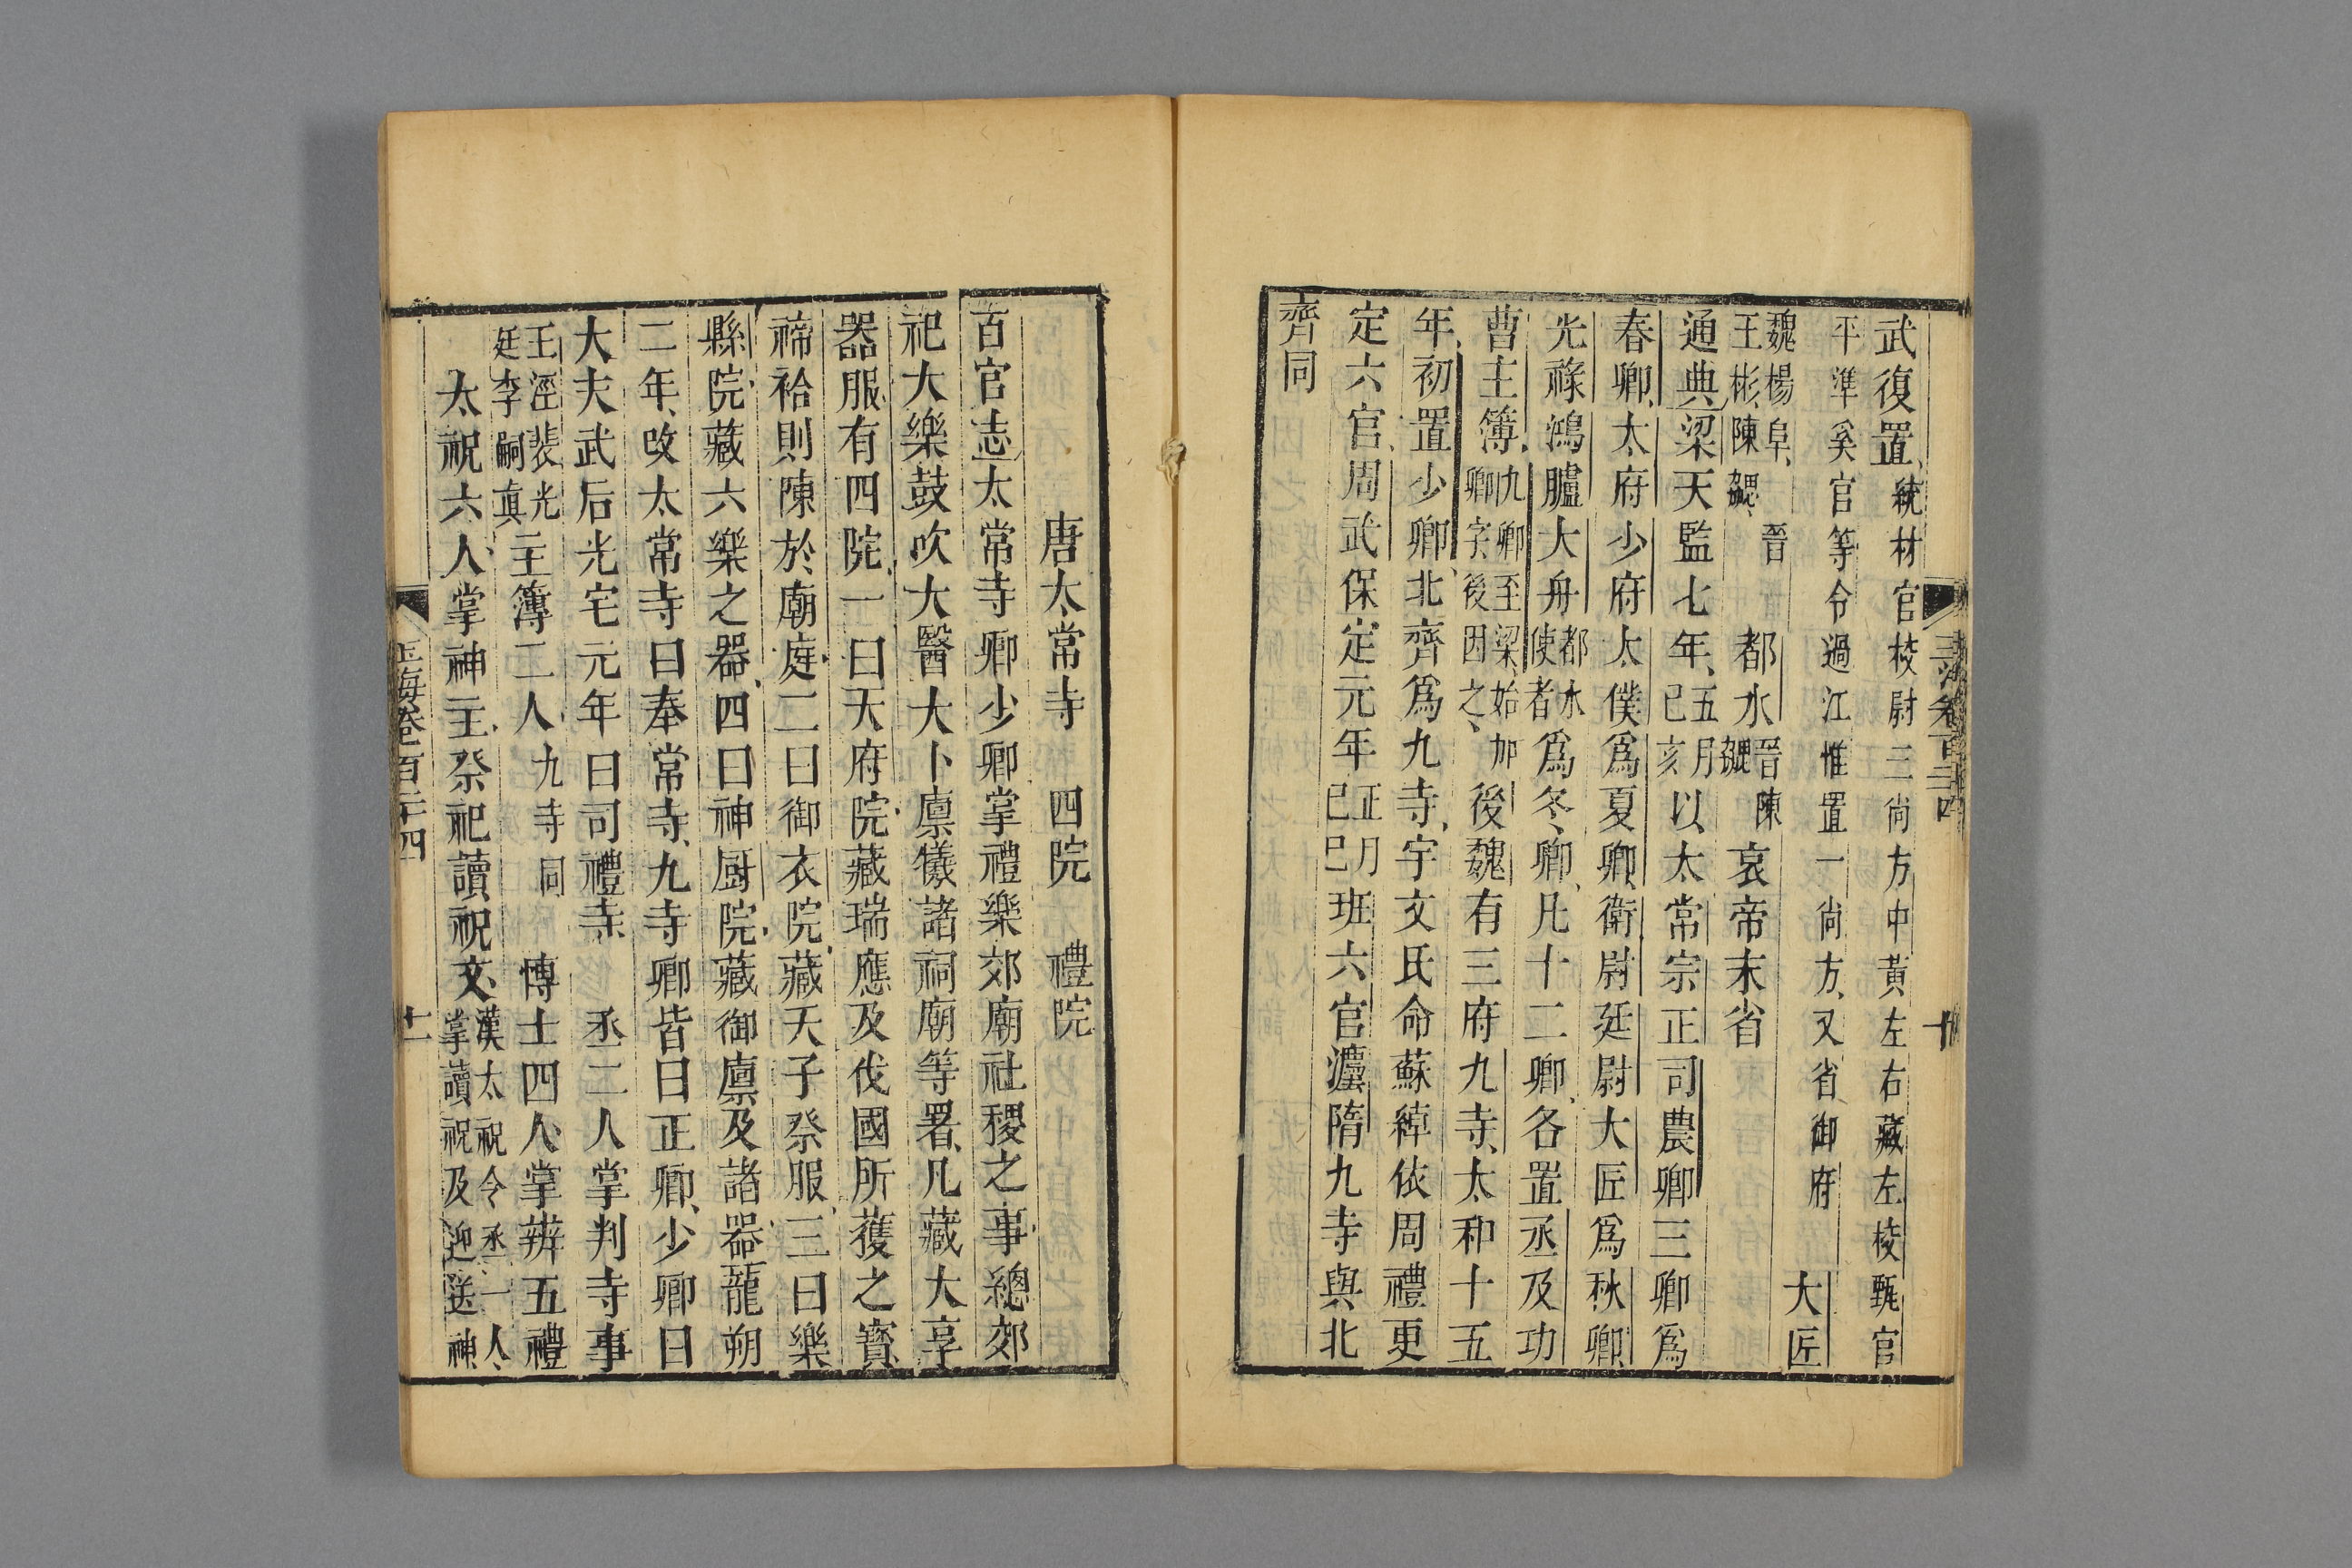 武復置統材官校尉三尚方中黃左右藏左校甄官
平準奚官等令過江惟置一尚方又省御府 大匠
魏楊阜晉王彬陳勰 都水晉陳勰 哀帝末省
通典梁天監七年五月己亥以太常宗正司農卿三卿爲
春卿太府少府太僕爲夏卿衛尉廷尉大匠爲秋卿
光祿鴻臚大舟都水使者爲冬卿凡十二卿各置丞及功
曹主簿九卿至梁始加卿字後因之後魏有三府九寺太和十五
年初置少卿北齊爲九寺宇文氏命蘇綽依周禮更
定六官周武保定元年正月己巳班六官灋隋九寺與北
齊同
玉海卷百二十四 十
唐太常寺 四院 禮院
百官志太常寺卿少卿掌禮樂郊廟社稷之事總郊
祀大樂鼓吹大醫大卜廩犧諸祠廟等署凡藏大享
器服有四院一曰天府院藏瑞應及伐國所獲之寶
禘祫則陳於廟庭二曰御衣院藏天子祭服三曰樂
縣院藏六樂之器四曰神廚院藏御廩及諸器龍朔
二年改太常寺曰奉常寺九寺卿皆曰正卿少卿曰
大夫武后光宅元年曰司禮寺 丞二人掌判寺事
王涇裴光廷李嗣真主簿二人九寺同 博士四人掌辨五禮
太祝六人掌神主祭祀讀祝文漢太祝令丞一人掌讀祝及迎送神
玉海卷百二十四 十一